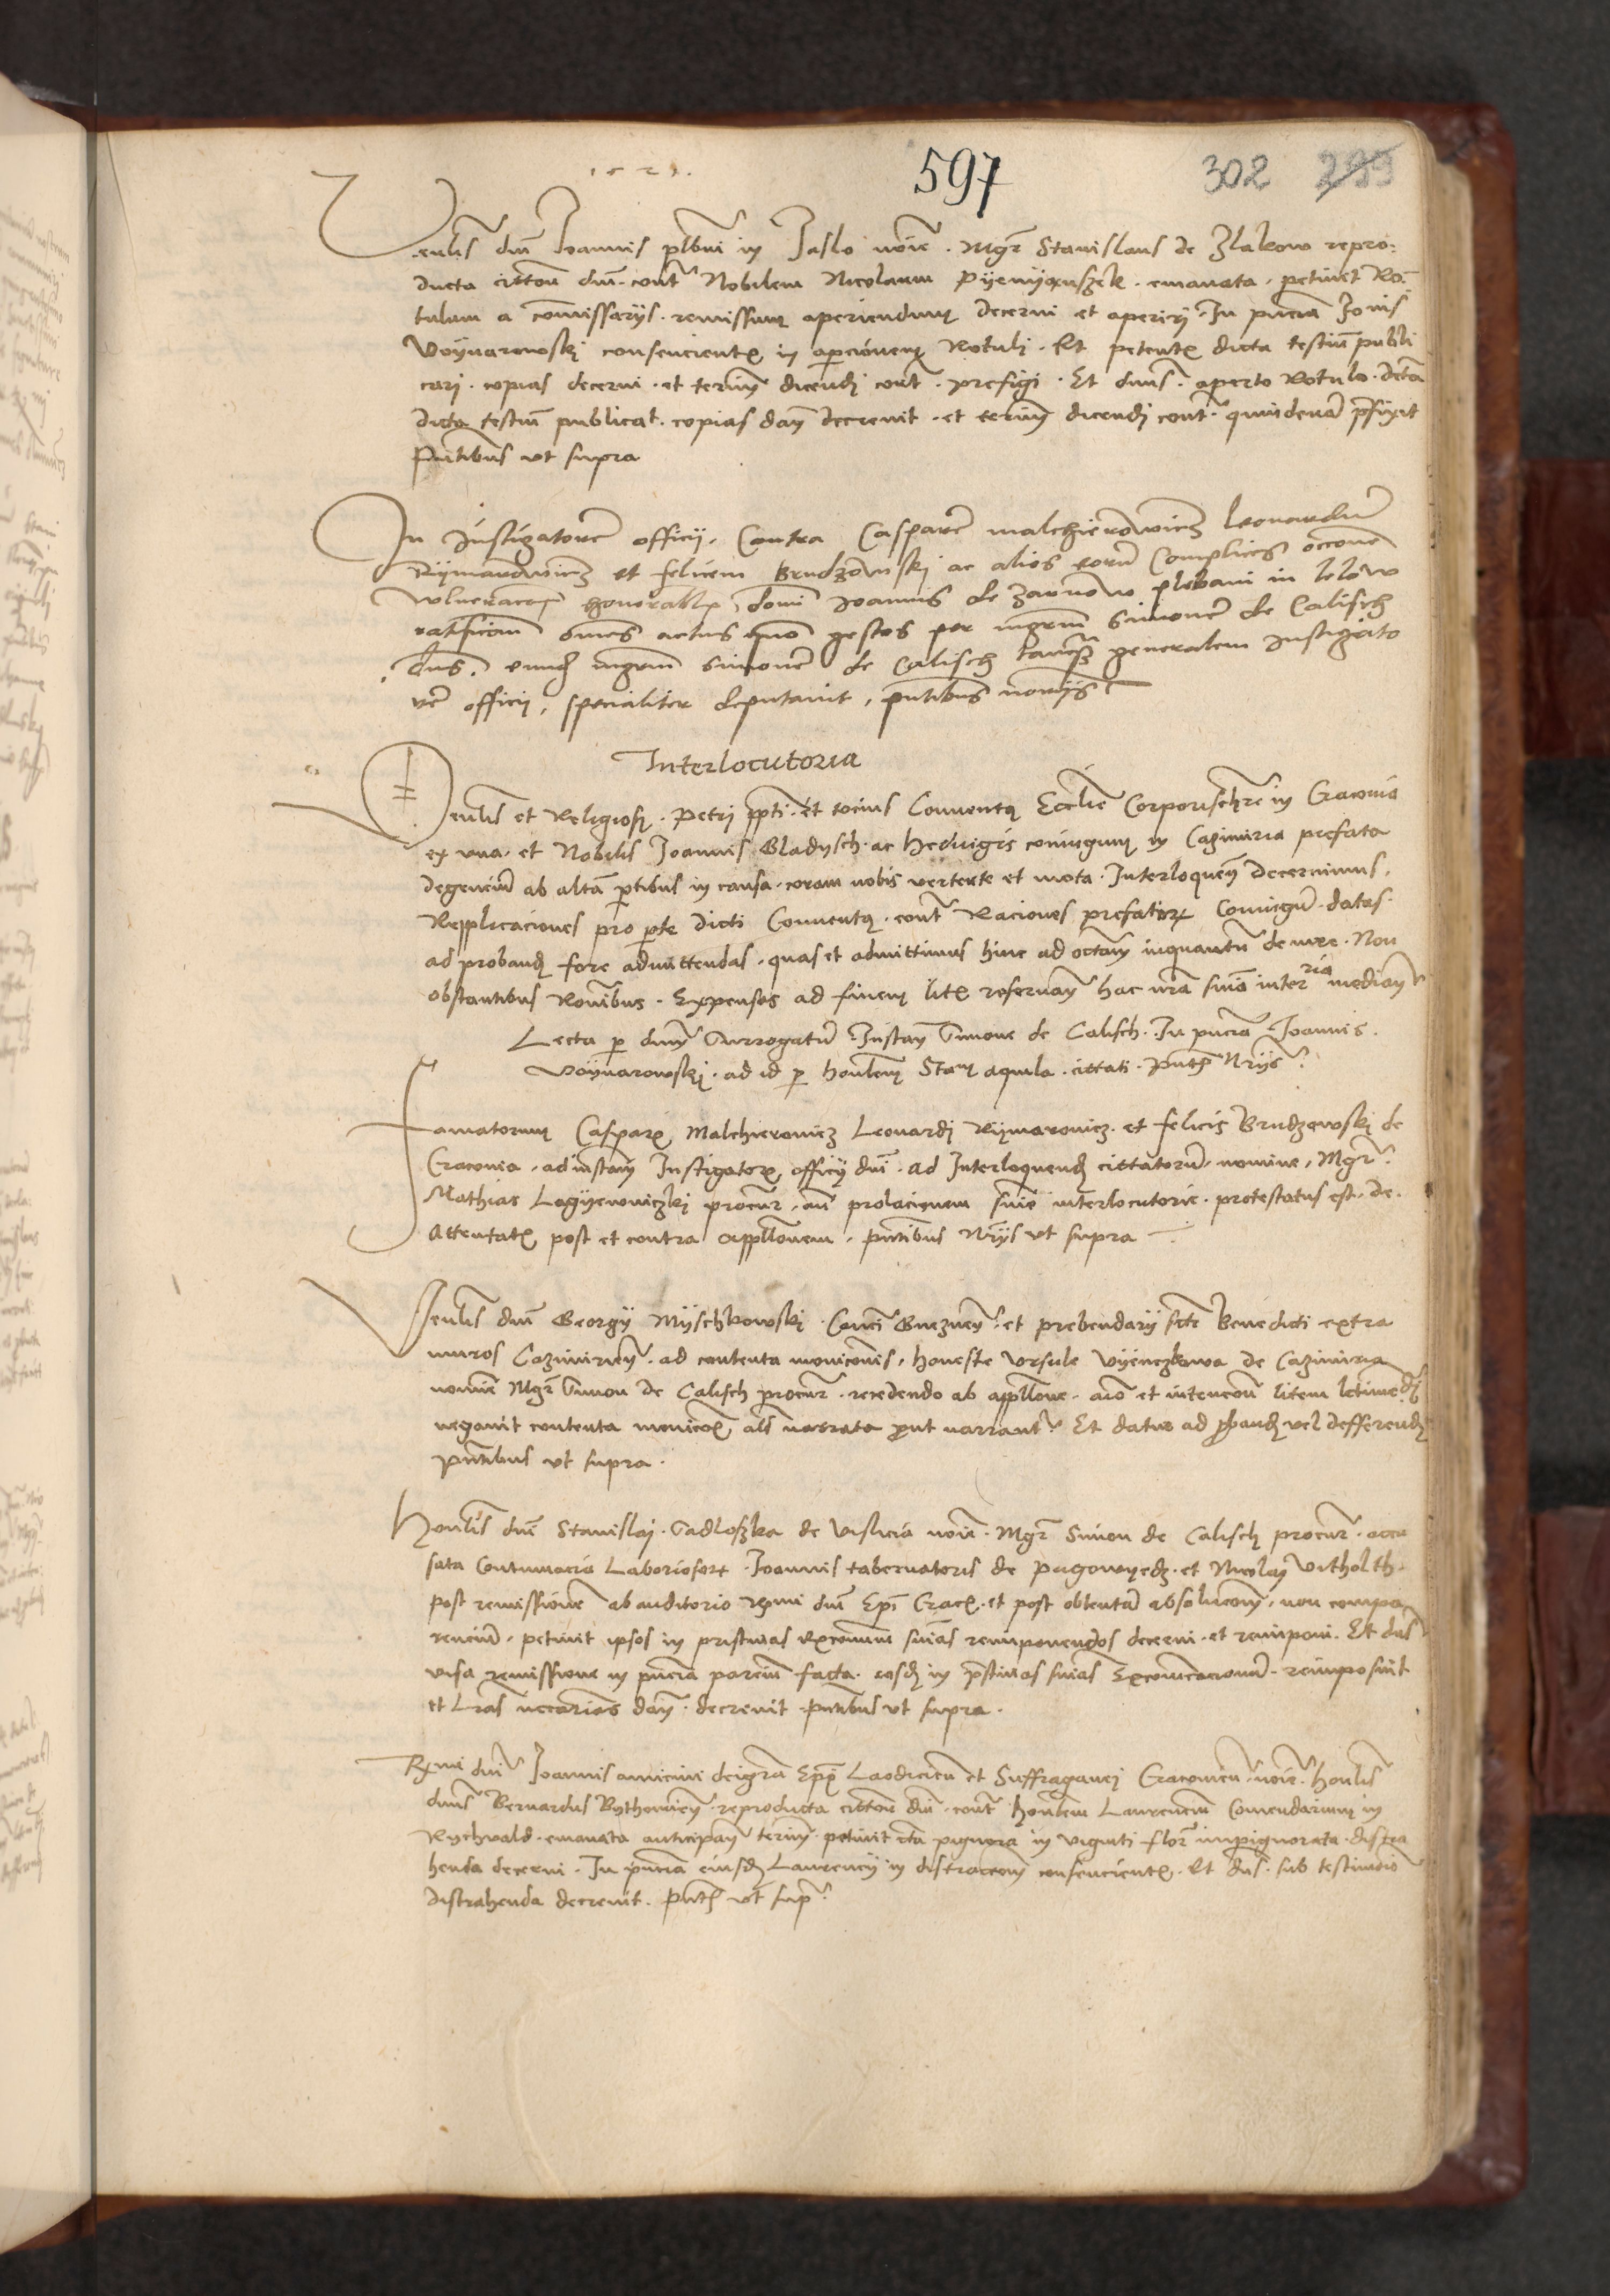 1521.
597
302 299
Venlis dni Joannis plbni in Jaslo noie. Mgr Stanislaus de Zlakow repro:
ducta cittone dni. cont Nobilem Nicolaum emanata. petivit Ro:
tulum a comissarijs. remissum aperiendum decerni et aperiri. In pncia Jonis
Voynarowskj consencientis in apcionem Rotulj. Et petentis dicta testium publi
cari. copias decerni. et terinm dicendj cont. prefigi. Et dnus. aperto Rotulo.
dicta testium publicat. copias dam decrevit. et terinm dicendj cont. quindenam pfixit
Pntibus vt supra
In instigatore officij. Contra Casparem malchierowicz leonardum
Rymarowicz et felicem Brudzowskj ac alios eorum Complices occone
vulneracois honorablis domi Joannis de Zarnow plebani in lelow
ratificans omes actus gestos per mgrm simonem de Calisch
dns. eundem mgrm simonem de Calisch tanqm generalem instigato
rem officij, specialiter deputavit, pntibus norijs
Interlocutoria
Venlis et Religiosi. Petrj ppti. et tocius Conventus Ecclie Corporischri in Cracovia
ex vna. et Nobilis Joannis Gladysch. ac Hedvigis coniugum in Cazimiria prefata
degencium ab altera ptibus in causa. coram nobis vertente et mota. Interloquen decernimus.
Repplicaciones pro pte dicti Conventus. cont Raciones prefatorum Coniugum. datas.
ad probandum fore admittendas. quas et admittimus hinc ad octavam inquantum de iure. Non
obstantibus Ronibus. Expensas ad finem litis reservan hac nra sniam inter ria median
Lecta p dnum Surrogatum. Instan Simone de Calisch. In pncia Joannis.
Voynarowskj. ad id p honlem Stan aquila. cittati. Pntibus Nrijs
Famatorum Casparis Malchierowicz Leonardj Rymarowicz. et felicis Brudzewskj de
Cracovia. ad instan Instigatoris officij dni. ad Interloquend cittatorum. nomine. Mgr
Mathias procur. an prolacionem snie interlocutorie. protestatus est. de
attentatis post et contra appllonem. Pntibus Nrijs vt supra
Venlis dni Georgij Myschkowskj. Canci Gneznen. et prebendarij scti Benedicti extra
muros Cazimirien. ad contenta moniconis. honeste Vrsule de Cazimiria
nomie Mgr Simon de Calisch procur. recedendo ab appllone. aio et intencone litem
negavit contenta monicois als narrata prout narrant. Et datur ad probandum vel defferendum
Pntibus vt supra.
Honlis dni Stanislaj. Gadloszka de Vislicia noie. Mgr Simon de Calisch procur. accu
sata Contumacia Laboriosorum. Joannis tabernatoris de et Nicolaj Vitholth.
post remissionem ab auditorio Rmi dni Epi Crac. et post obtentam absolucionem. non compa
rencium. petivit ipsos in pristinas Excomum snias reimponendos decerni. et reimponi. Et dns
visa remissione in pncia parcium facta. eosdem in pstinas snias Excomicacionum. reimposuit
et Lras necarias dan. decrevit. Pntibus vt supra.
Rmi dni Joannis amicini deigra Epi Laodicien et Suffraganej Cracovien. noie. honlis
dnus Bernardus reproducta cittone dni. cont honlem Laurencium Comendarium in
Rychwald. emanata anticipan terinm. petivit cta pignora in viginti flor impignorata. distra
henda decerni. In pncia eiusdem Laurencij in distraccionem consencientis. Et dns. sub testimonio
distrahenda decrevit. Pntibus vt supr